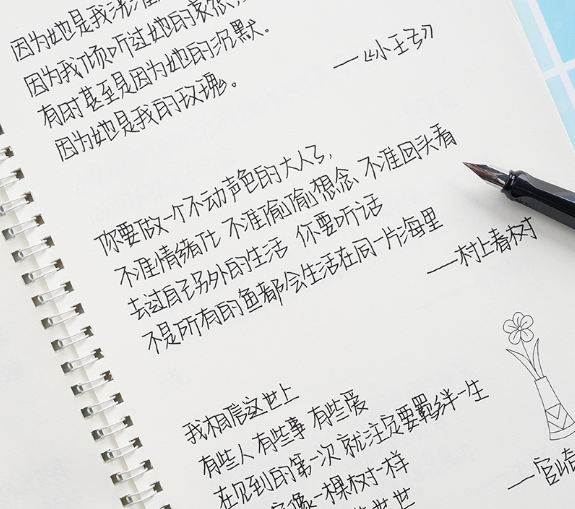 因为她是我浇灌
因为我倾听过她的哀怨
有时甚至是因为她的沉默。
因为她是我的玫瑰。
——《小王子》
你要做一个不动声色的大人了,
不准情绪化 不准偷偷想念、不准回头看
去过自己另外的生活 你要听话
不是所有的鱼都会生活在同一片海里
——村上春树
我相信这世上
有些人有些事 有些爱
在见到的第一次 就注定要羁绊一生
就像一棵树一样
——宫崎